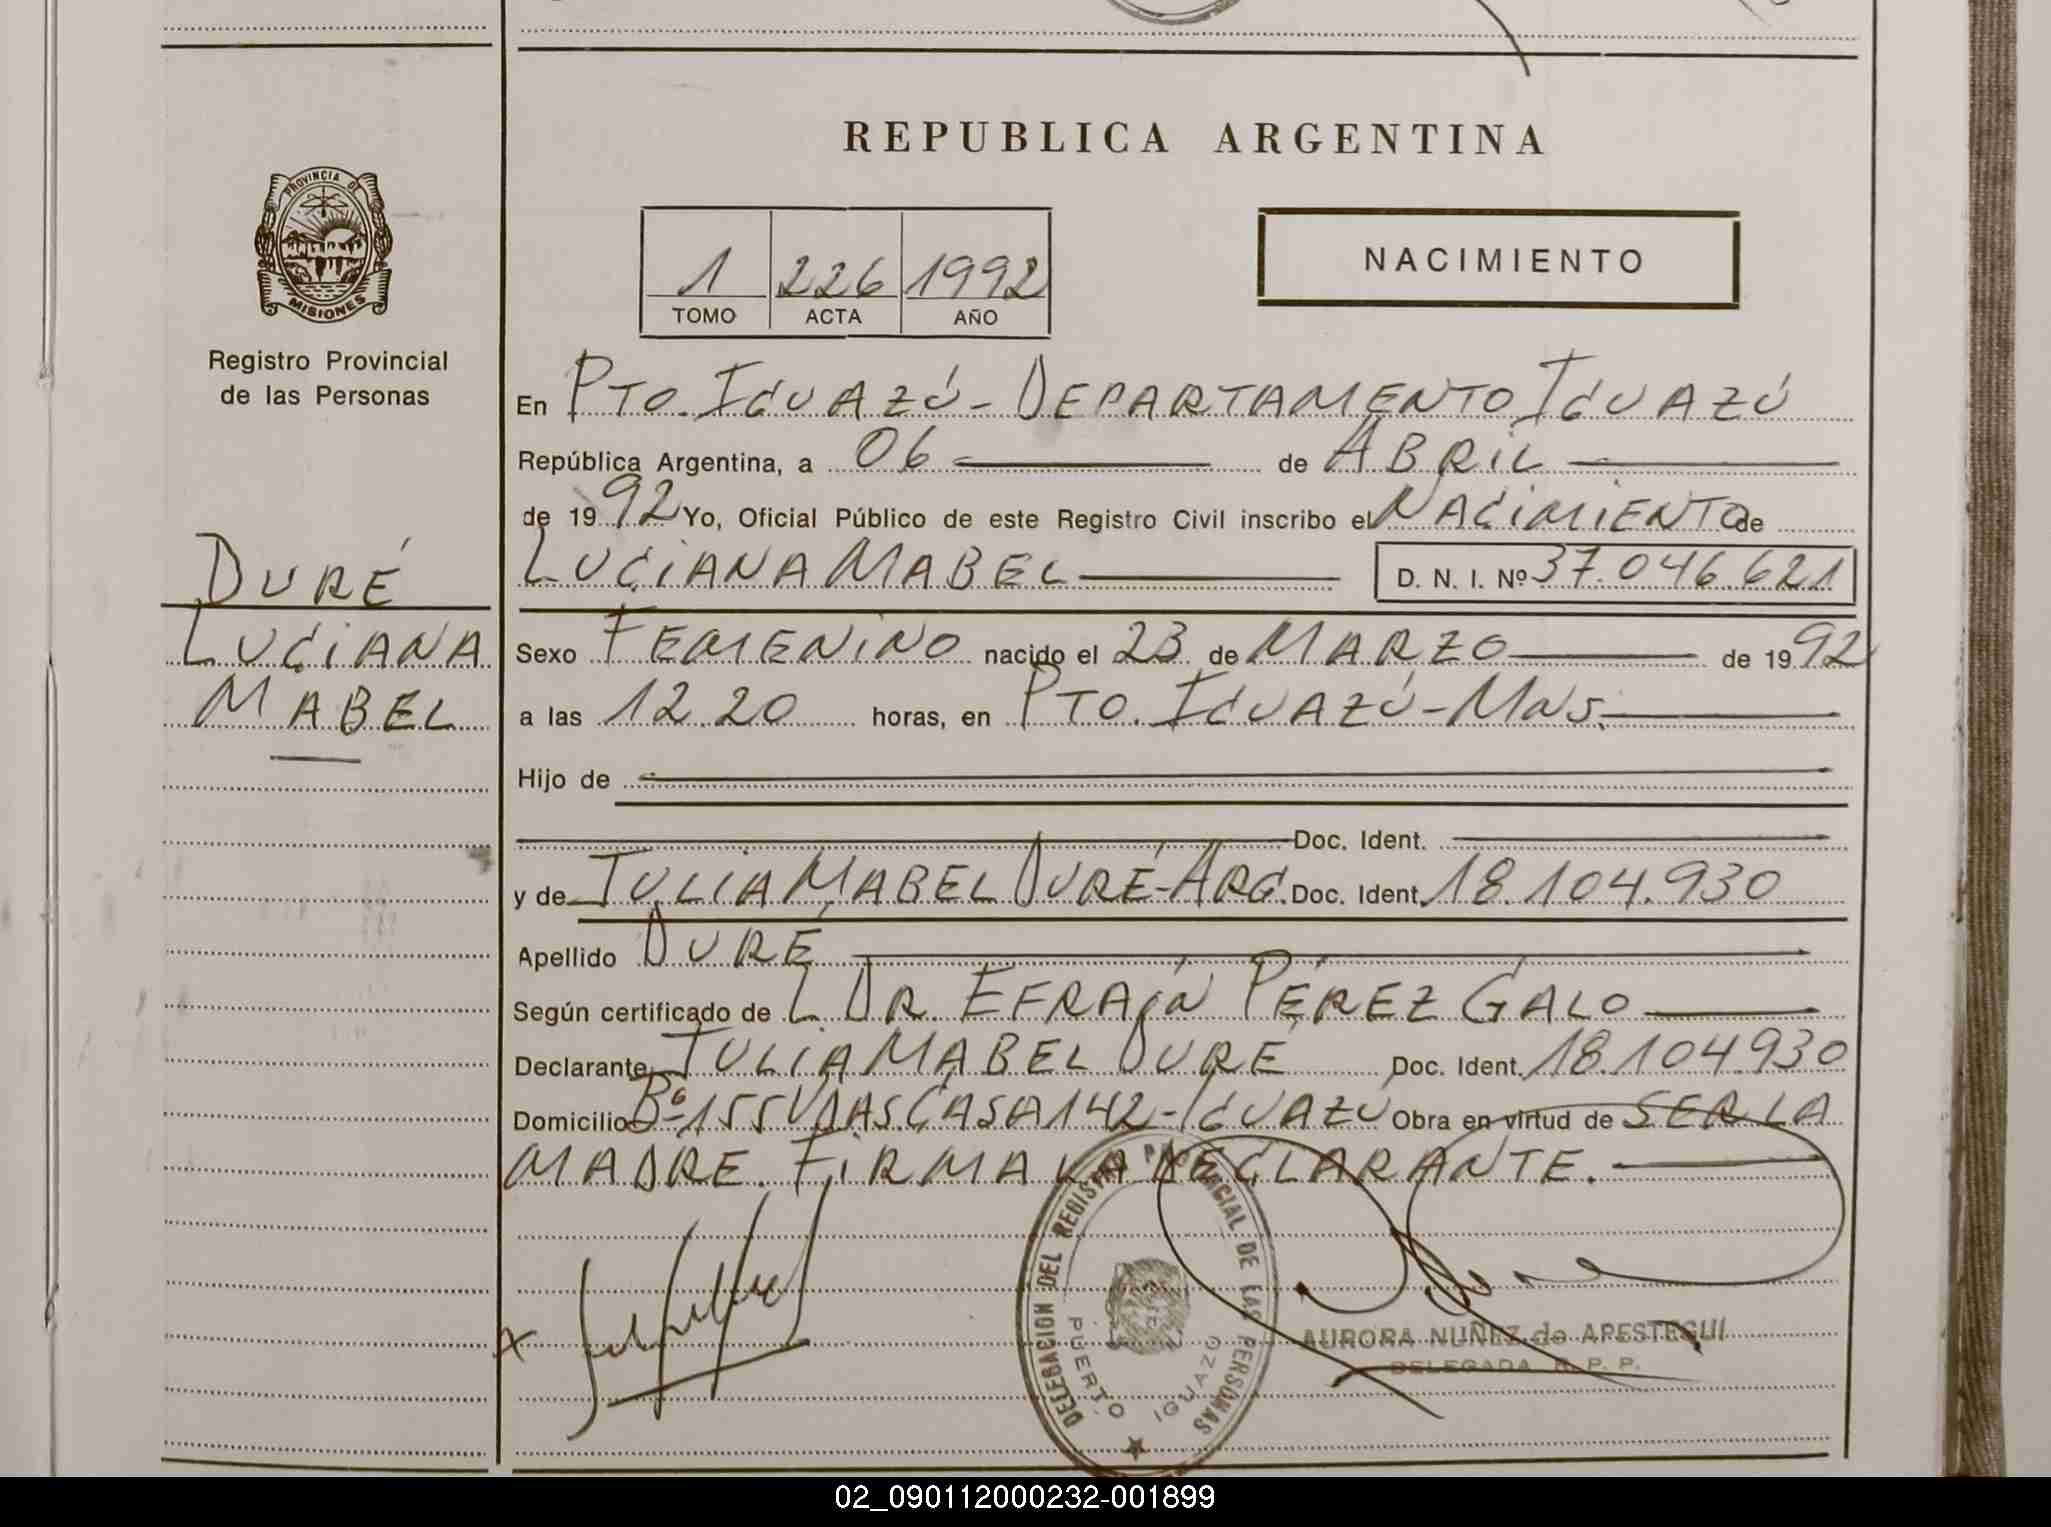 REPUBLICA ARGENTINA
PROVINCIA DE
MISIONES
Registro Provincial
de las Personas
1 226 1992
TOMO ACTA AÑO
NACIMIENTO
En PTO. IGUAZÚ - DEPARTAMENTO IGUAZÚ
República Argentina, a 06 de ABRIL
de 1992 Yo, Oficial Público de este Registro Civil inscribo el NACIMIENTO de
LUCIANA MABEL D. N. I. Nº 37.046.621
DURÉ
LUCIANA
MABEL
Sexo FEMENINO nacido el 23 de MARZO de 1992
a las 12.20 horas, en PTO. IGUAZÚ - MNS.
Hijo de
Doc. Ident.
y de JULIA MABEL DURÉ - ARG. Doc. Ident. 18.104.930
Apellido DURÉ
Según certificado de L. DR. EFRAÍN PÉREZ GALO
Declarante JULIA MABEL DURÉ Doc. Ident. 18.104.930
Domicilio Bº 155 VDAS CASA 142 - IGUAZÚ Obra en virtud de SER LA
MADRE. FIRMA LA DECLARANTE.
DELEGACION DEL REGISTRO PROVINCIAL DE LAS PERSONAS
PUERTO IGUAZU
AURORA NUÑEZ de APESTEGUI
DELEGADA R. P. P.
02_090112000232-001899